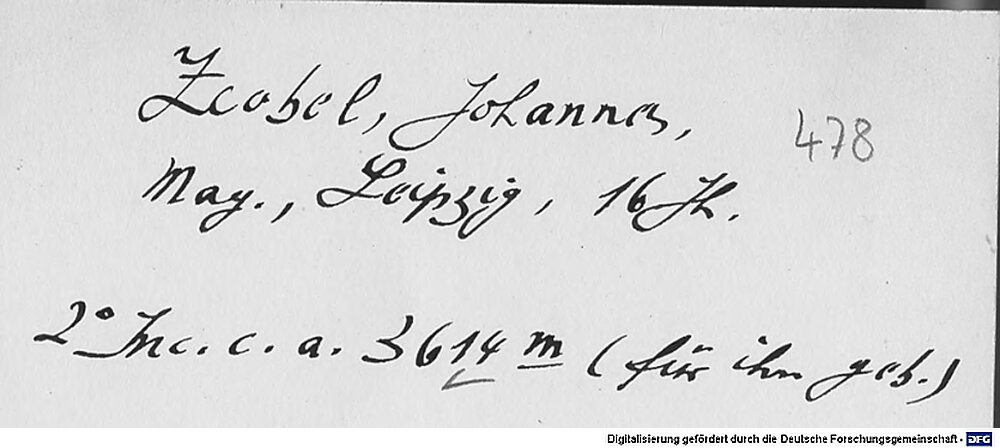 Zcobel, Johannes,
478
Mag., Leipzig, 16 Jh.
2° Inc. c. a. 3614 m (für ihn geb.)
Digitalisierung gefördert durch die Deutsche Forschungsgemeinschaft - DFG